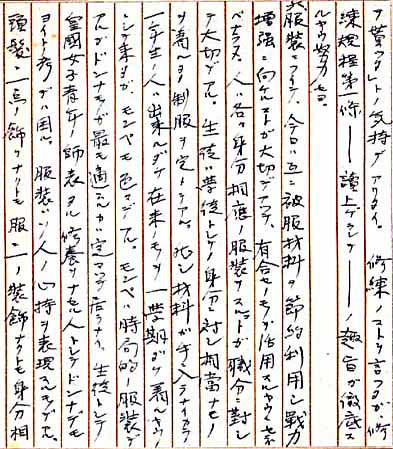 ヲ實ナルトノ気持デアリタイ。修練ノコトヲ言フタガ、修
練規程第一條――讀上ゲラレテ――ノ趣旨ガ徹底ス
ルヤウ努ムルコト。
共服装ニツイテ、今日ハ互ニ被服材料ヲ節約利用シ戦力
増強ニ向ケルコトガ大切デアツテ、有合セノモノヲ活用スルヤウセネ
バナラヌ。人ハ各々身分相應ノ服装ヲスルコトガ職分ニ對シ
テ大切デアル。生徒ハ學徒トシテノ身分ニ對シ相當ナモノ
ヲ着ル。制服ヲ定メテアル。然シ材料ガ手ニ入ラナイカラ
一年生ノ人ハ出来ルダケ在来ノモノヲ一學期ダケ着ルヤウニ
シテ来タガ、モンペモ色々アル。モンペハ時局的ノ服装デ
アルガドンナモノガ最モ適スルカハ定マツテ居ラナイ。生徒トシテ
皇國女子青年ノ師表タル修養ヲナセル人トシテドンナデモ
ヨイト考ヘテハ困ル。服装ハソノ人ノ心持ヲ表現スルモノデアル。
頭髪一ツノ飾リナリトモ服ニ一ツノ装飾ナリトモ身分相